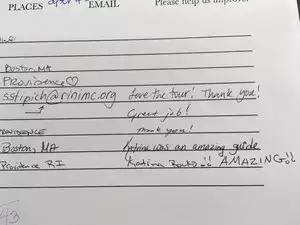 PLACES EMAIL Please help us improve
Boston, MA
Providence ♡
sstipich@rinimc.org Love the tour! Thank you!
Great job!
PROVIDENCE Thank you!
Boston, MA Katrina was an amazing guide
Providence RI Katrina !! AMAZING!!